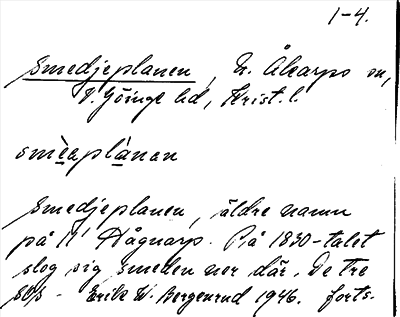 1-4.
Smedjeplanen, N. Åkarps sn,
V. Göinge hd, Krist. l.
smèaplànan
Smedjeplanen, äldre namn
på 11 Hågnarp. På 1830-talet
slog sig smeden ner där. De tre
Erik W. Bergenrud 1946. forts.